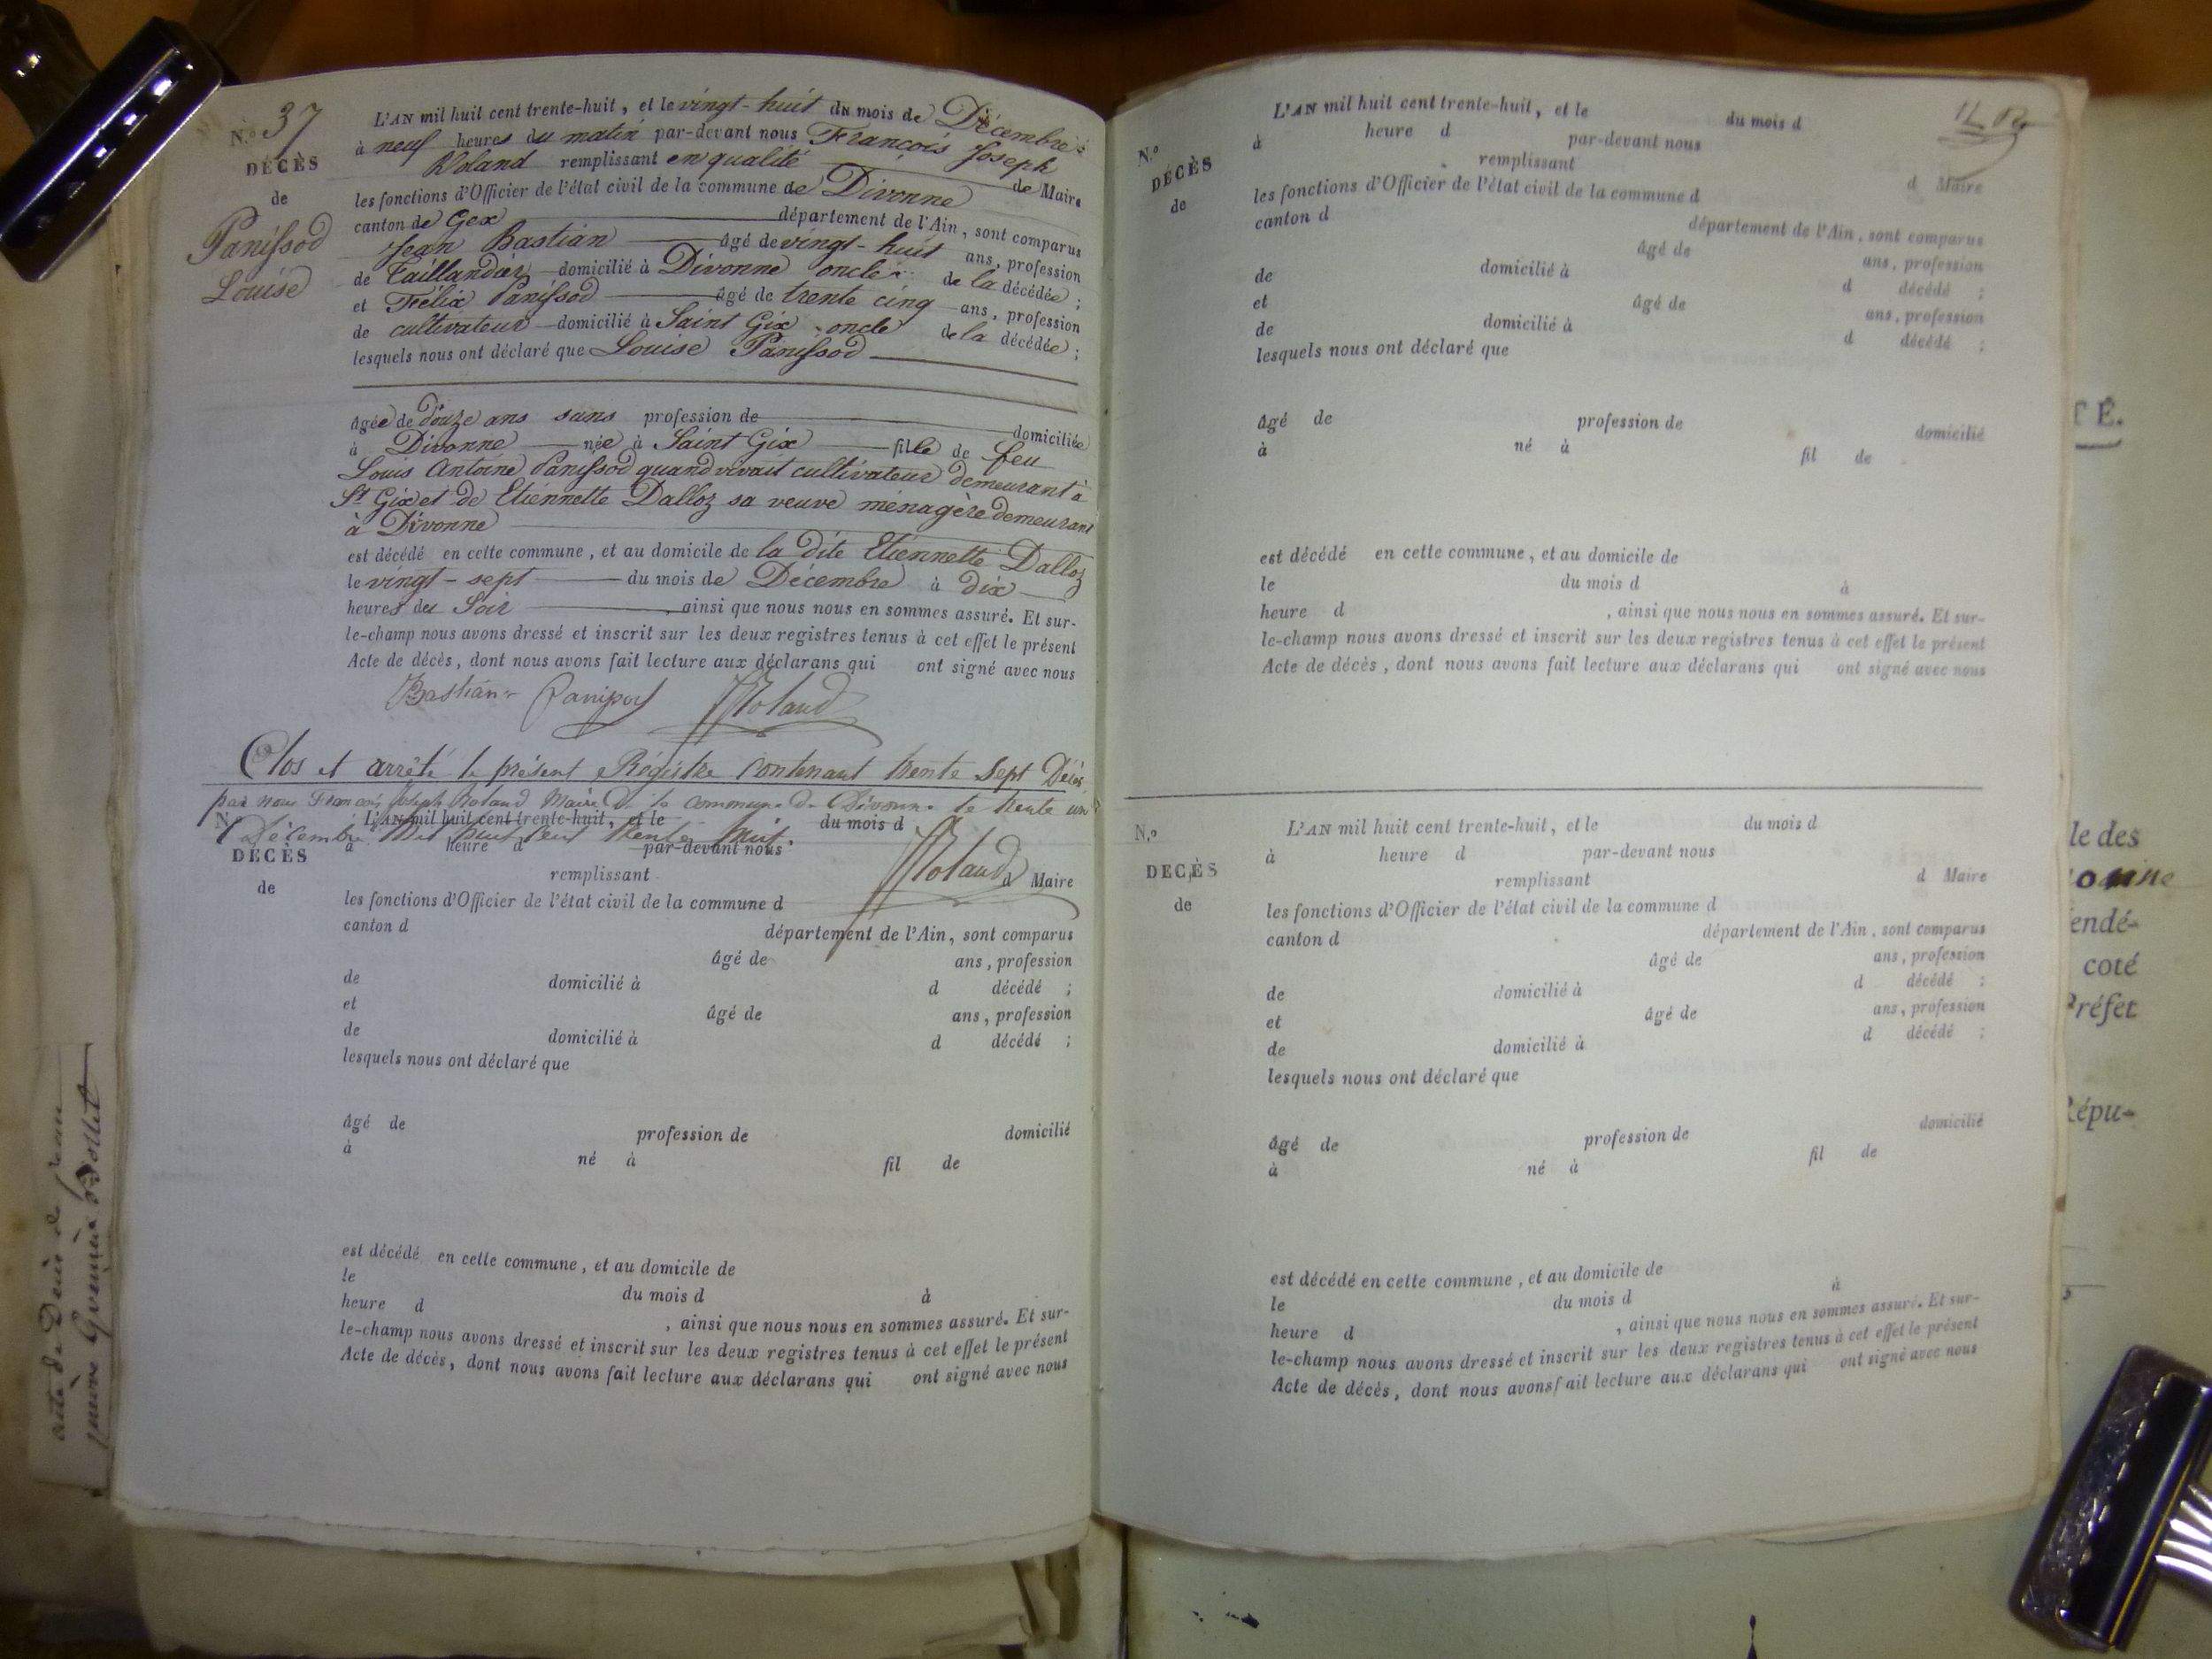 N.º 37
DÉCÈS
de
Panissod
Louise
L'AN mil huit cent trente-huit, et le vingt-huit du mois de Décembre
à neuf heures du matin par-devant nous François Joseph
Roland remplissant en qualité de Maire
les fonctions d'Officier de l'état civil de la commune de Divonne
canton de Gex département de l'Ain, sont comparus
Jean Bastian âgé de vingt-huit ans, profession
de Taillandier domicilié à Divonne oncle de la décédée ;
et Félix Panissod âgé de trente cinq ans, profession
de cultivateur domicilié à Saint Gix oncle de la décédée ;
lesquels nous ont déclaré que Louise Panissod
âgée de douze ans sans profession de domiciliée
à Divonne née à Saint Gix fille de feu
Louis Antoine Panissod quand vivait cultivateur demeurant à
St Gix et de Etiennette Dalloz sa veuve ménagère demeurant
à Divonne
est décédé en cette commune, et au domicile de la dite Etiennette Dalloz
le vingt-sept du mois de Décembre à dix
heures du Soir , ainsi que nous nous en sommes assuré. Et sur-
le-champ nous avons dressé et inscrit sur les deux registres tenus à cet effet le présent
Acte de décès, dont nous avons fait lecture aux déclarans qui ont signé avec nous
Bastian Panissod Roland
Clos et arrêté le présent Régistre contenant trente sept Décès
par nous François Joseph Roland Maire de la commune de Divonne le trente un
Décembre mil huit cent trente huit.
Roland
N.º
DÉCÈS
de
L'AN mil huit cent trente-huit, et le du mois d
à heure d par-devant nous
remplissant d Maire
les fonctions d'Officier de l'état civil de la commune d
canton d département de l'Ain, sont comparus
âgé de ans, profession
de domicilié à d décédé ;
et âgé de ans, profession
de domicilié à d décédé ;
lesquels nous ont déclaré que
âgé de profession de domicilié
à né à fil de
est décédé en cette commune, et au domicile de
le du mois d à
heure d , ainsi que nous nous en sommes assuré. Et sur-
le-champ nous avons dressé et inscrit sur les deux registres tenus à cet effet le présent
Acte de décès, dont nous avons fait lecture aux déclarans qui ont signé avec nous
N.º
DÉCÈS
de
L'AN mil huit cent trente-huit, et le du mois d
à heure d par-devant nous
remplissant d Maire
les fonctions d'Officier de l'état civil de la commune d
canton d département de l'Ain, sont comparus
âgé de ans, profession
de domicilié à d décédé ;
et âgé de ans, profession
de domicilié à d décédé ;
lesquels nous ont déclaré que
âgé de profession de domicilié
à né à fil de
est décédé en cette commune, et au domicile de
le du mois d à
heure d , ainsi que nous nous en sommes assuré. Et sur-
le-champ nous avons dressé et inscrit sur les deux registres tenus à cet effet le présent
Acte de décès, dont nous avons fait lecture aux déclarans qui ont signé avec nous
N.º
DÉCÈS
de
L'AN mil huit cent trente-huit, et le du mois d
à heure d par-devant nous
remplissant d Maire
les fonctions d'Officier de l'état civil de la commune d
canton d département de l'Ain, sont comparus
âgé de ans, profession
de domicilié à d décédé ;
et âgé de ans, profession
de domicilié à d décédé ;
lesquels nous ont déclaré que
âgé de profession de domicilié
à né à fil de
est décédé en cette commune, et au domicile de
le du mois d à
heure d , ainsi que nous nous en sommes assuré. Et sur-
le-champ nous avons dressé et inscrit sur les deux registres tenus à cet effet le présent
Acte de décès, dont nous avons fait lecture aux déclarans qui ont signé avec nous
TÉ.
le des
endé-
coté
Préfet
Répu-
acte de Décès de